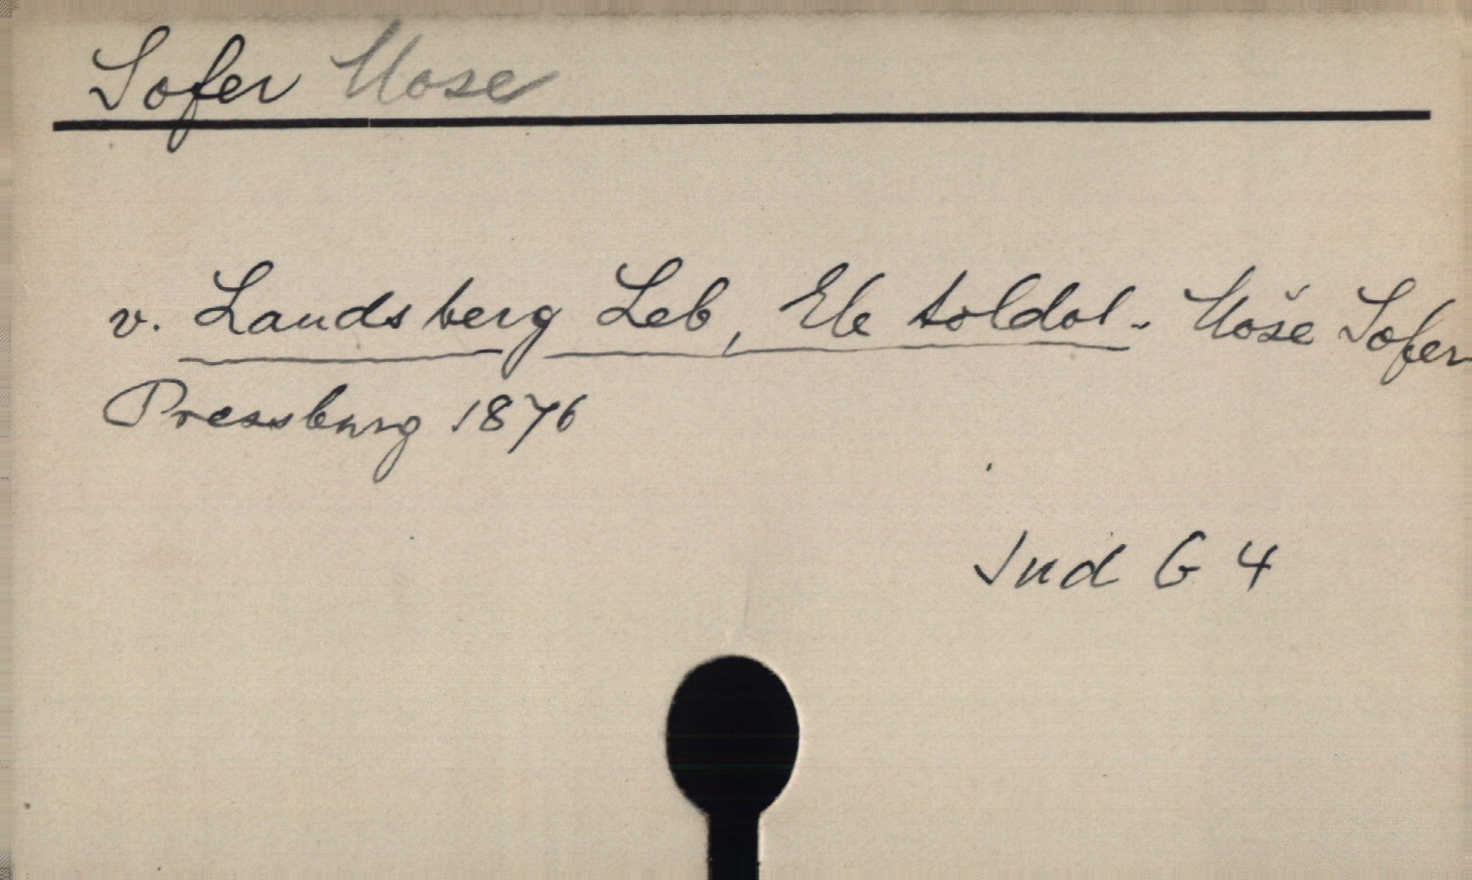 Sofer Mose
v. Landsberg Leb, Ele toldot - Moše Sofer
Pressburg 1876
Jud G 4